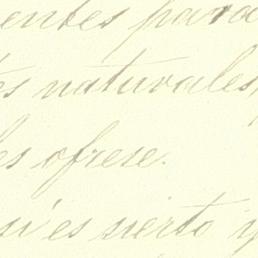 entes para
s naturales,
es ofrese.
si es sierto y